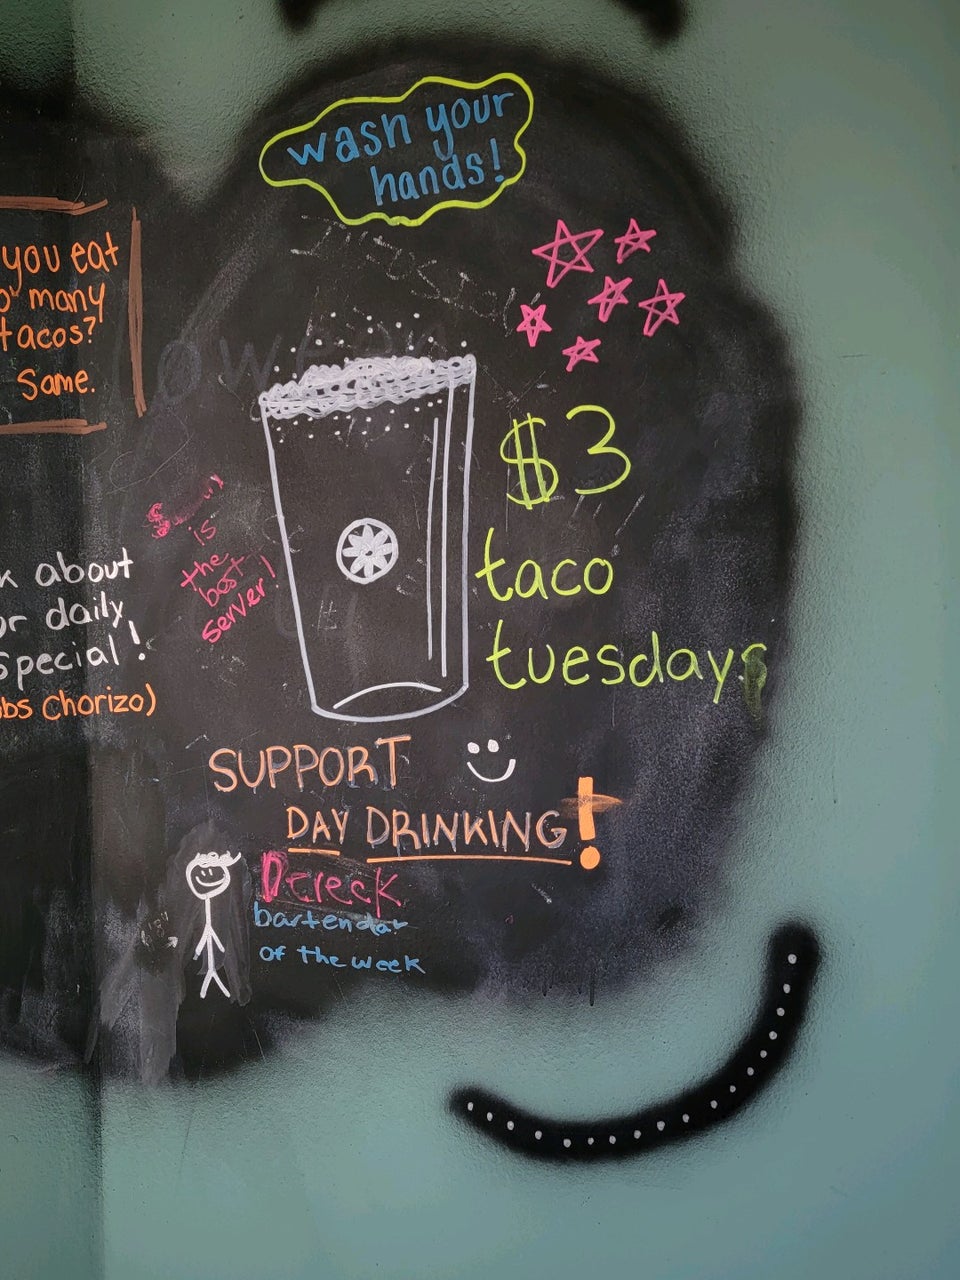 wash your
hands!
you eat
many
tacos?
Same.
$3
taco
tuesdays
is
the
best
server!
about
daily
special!
Chorizo)
SUPPORT
DAY DRINKING!
Dereck
bartendar
of the week